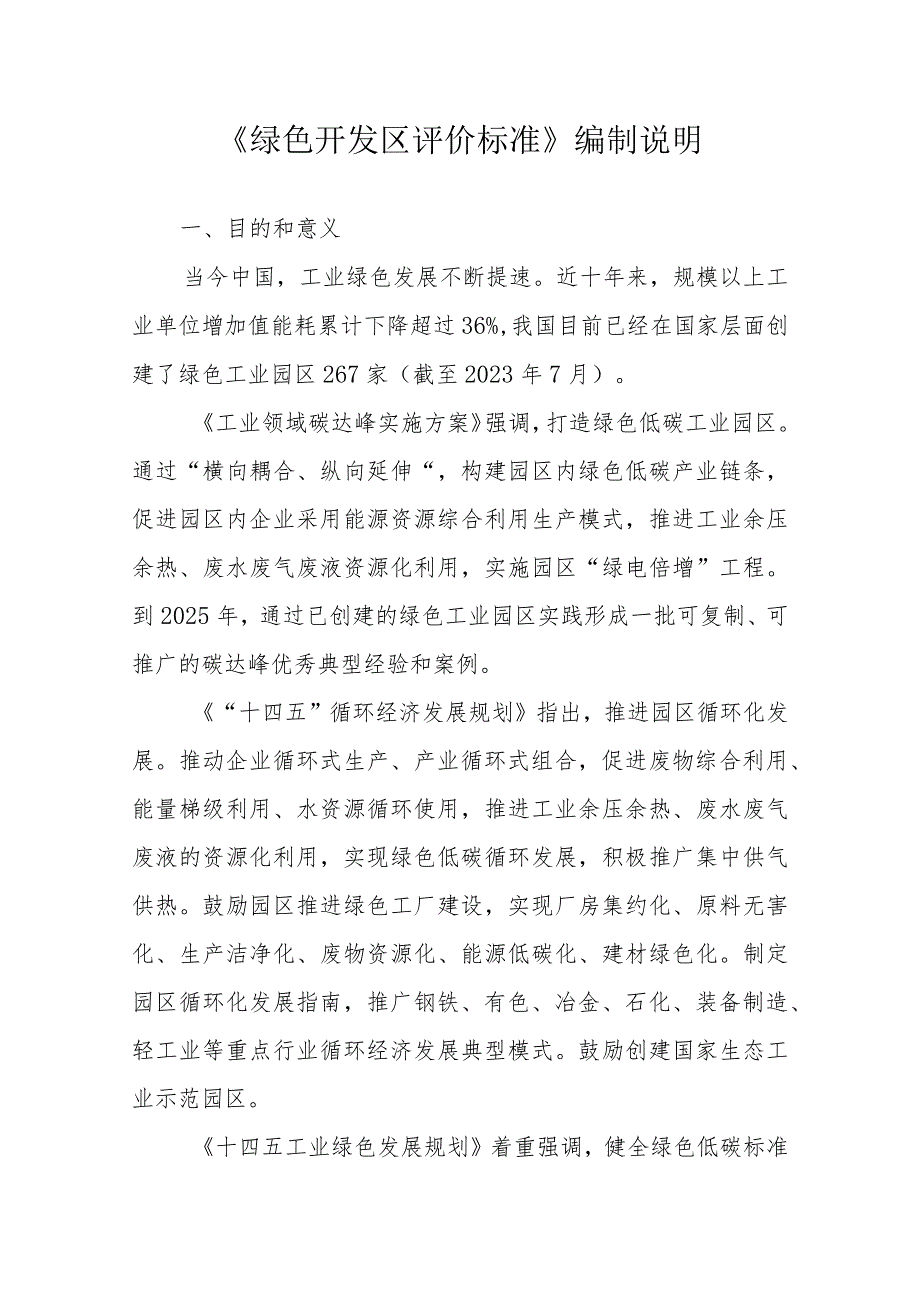 《绿色开发区评价标准》编制说明
一、目的和意义
当今中国，工业绿色发展不断提速。近十年来，规模以上工
业单位增加值能耗累计下降超过36%,我国目前已经在国家层面创
建了绿色工业园区267家（截至2023年7月）。
《工业领域碳达峰实施方案》强调，打造绿色低碳工业园区。
通过“横向耦合、纵向延伸“，构建园区内绿色低碳产业链条，
促进园区内企业采用能源资源综合利用生产模式，推进工业余压
余热、废水废气废液资源化利用，实施园区“绿电倍增”工程。
到2025年，通过已创建的绿色工业园区实践形成一批可复制、可
推广的碳达峰优秀典型经验和案例。
《“十四五”循环经济发展规划》指出，推进园区循环化发
展。推动企业循环式生产、产业循环式组合，促进废物综合利用、
能量梯级利用、水资源循环使用，推进工业余压余热、废水废气
废液的资源化利用，实现绿色低碳循环发展，积极推广集中供气
供热。鼓励园区推进绿色工厂建设，实现厂房集约化、原料无害
化、生产洁净化、废物资源化、能源低碳化、建材绿色化。制定
园区循环化发展指南，推广钢铁、有色、冶金、石化、装备制造、
轻工业等重点行业循环经济发展典型模式。鼓励创建国家生态工
业示范园区。
《十四五工业绿色发展规划》着重强调，健全绿色低碳标准